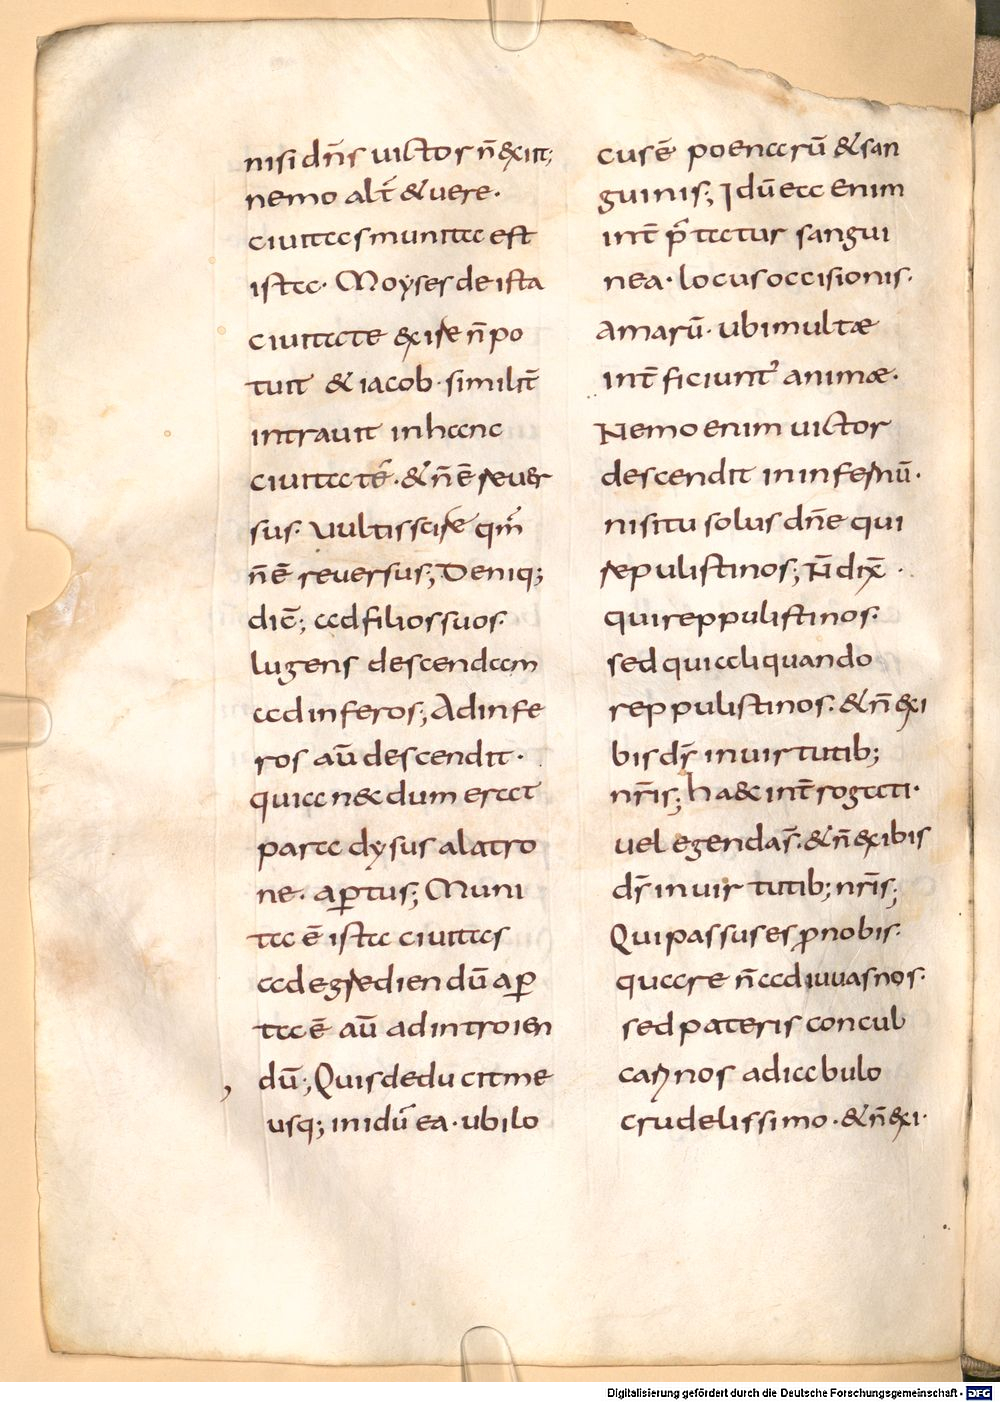 nisi dn̄s uictor n̄ exiit;
nemo alt̄ & uere·
ciuitas munita est
ista· Moyses de ista
ciuitate exire n̄ po
tuit & iacob· similit̄
intrauit in hanc
ciuitatē· & n̄ ē reuer
sus· Uultis scire qm̄
n̄ ē reuersus; Deniq;
dic̄; ad filios suos·
lugens descendam
ad inferos; Ad infe
ros aū descendit·
quia necdum erat
paradysus a latro
ne· aꝑtus; Muni
ta ē ista ciuitas
ad egrediendū aꝑ
ta ē aū ad introien
dū; Quis deducit me
usq; in idūea· ubi lo
cus ē poenarū & san
guinis; Idūea enim
int̄p̄tatur sangui
nea· locus occisionis·
Amarū· ubi multæ
int̄ficiunt᷑ animæ·
Nemo enim uictor
descendit in infernū·
nisi tu solus dn̄e qui
repulisti nos; N̄ dix̄·
qui reppulisti nos·
sed qui aliquando
reppulisti nos· & n̄ exi
bis ds̄ in uirtutib;
nr̄is; haec int̄rogati·
uel egendas̄· & n̄ exibis
ds̄ in uirtutib; nr̄is;
Qui passus es ꝓ nobis·
quare n̄ adiuuas nos·
sed pateris concul
caꝛ nos a diabulo
crudelissimo· & n̄ exi·
Digitalisierung gefördert durch die Deutsche Forschungsgemeinschaft - DFG